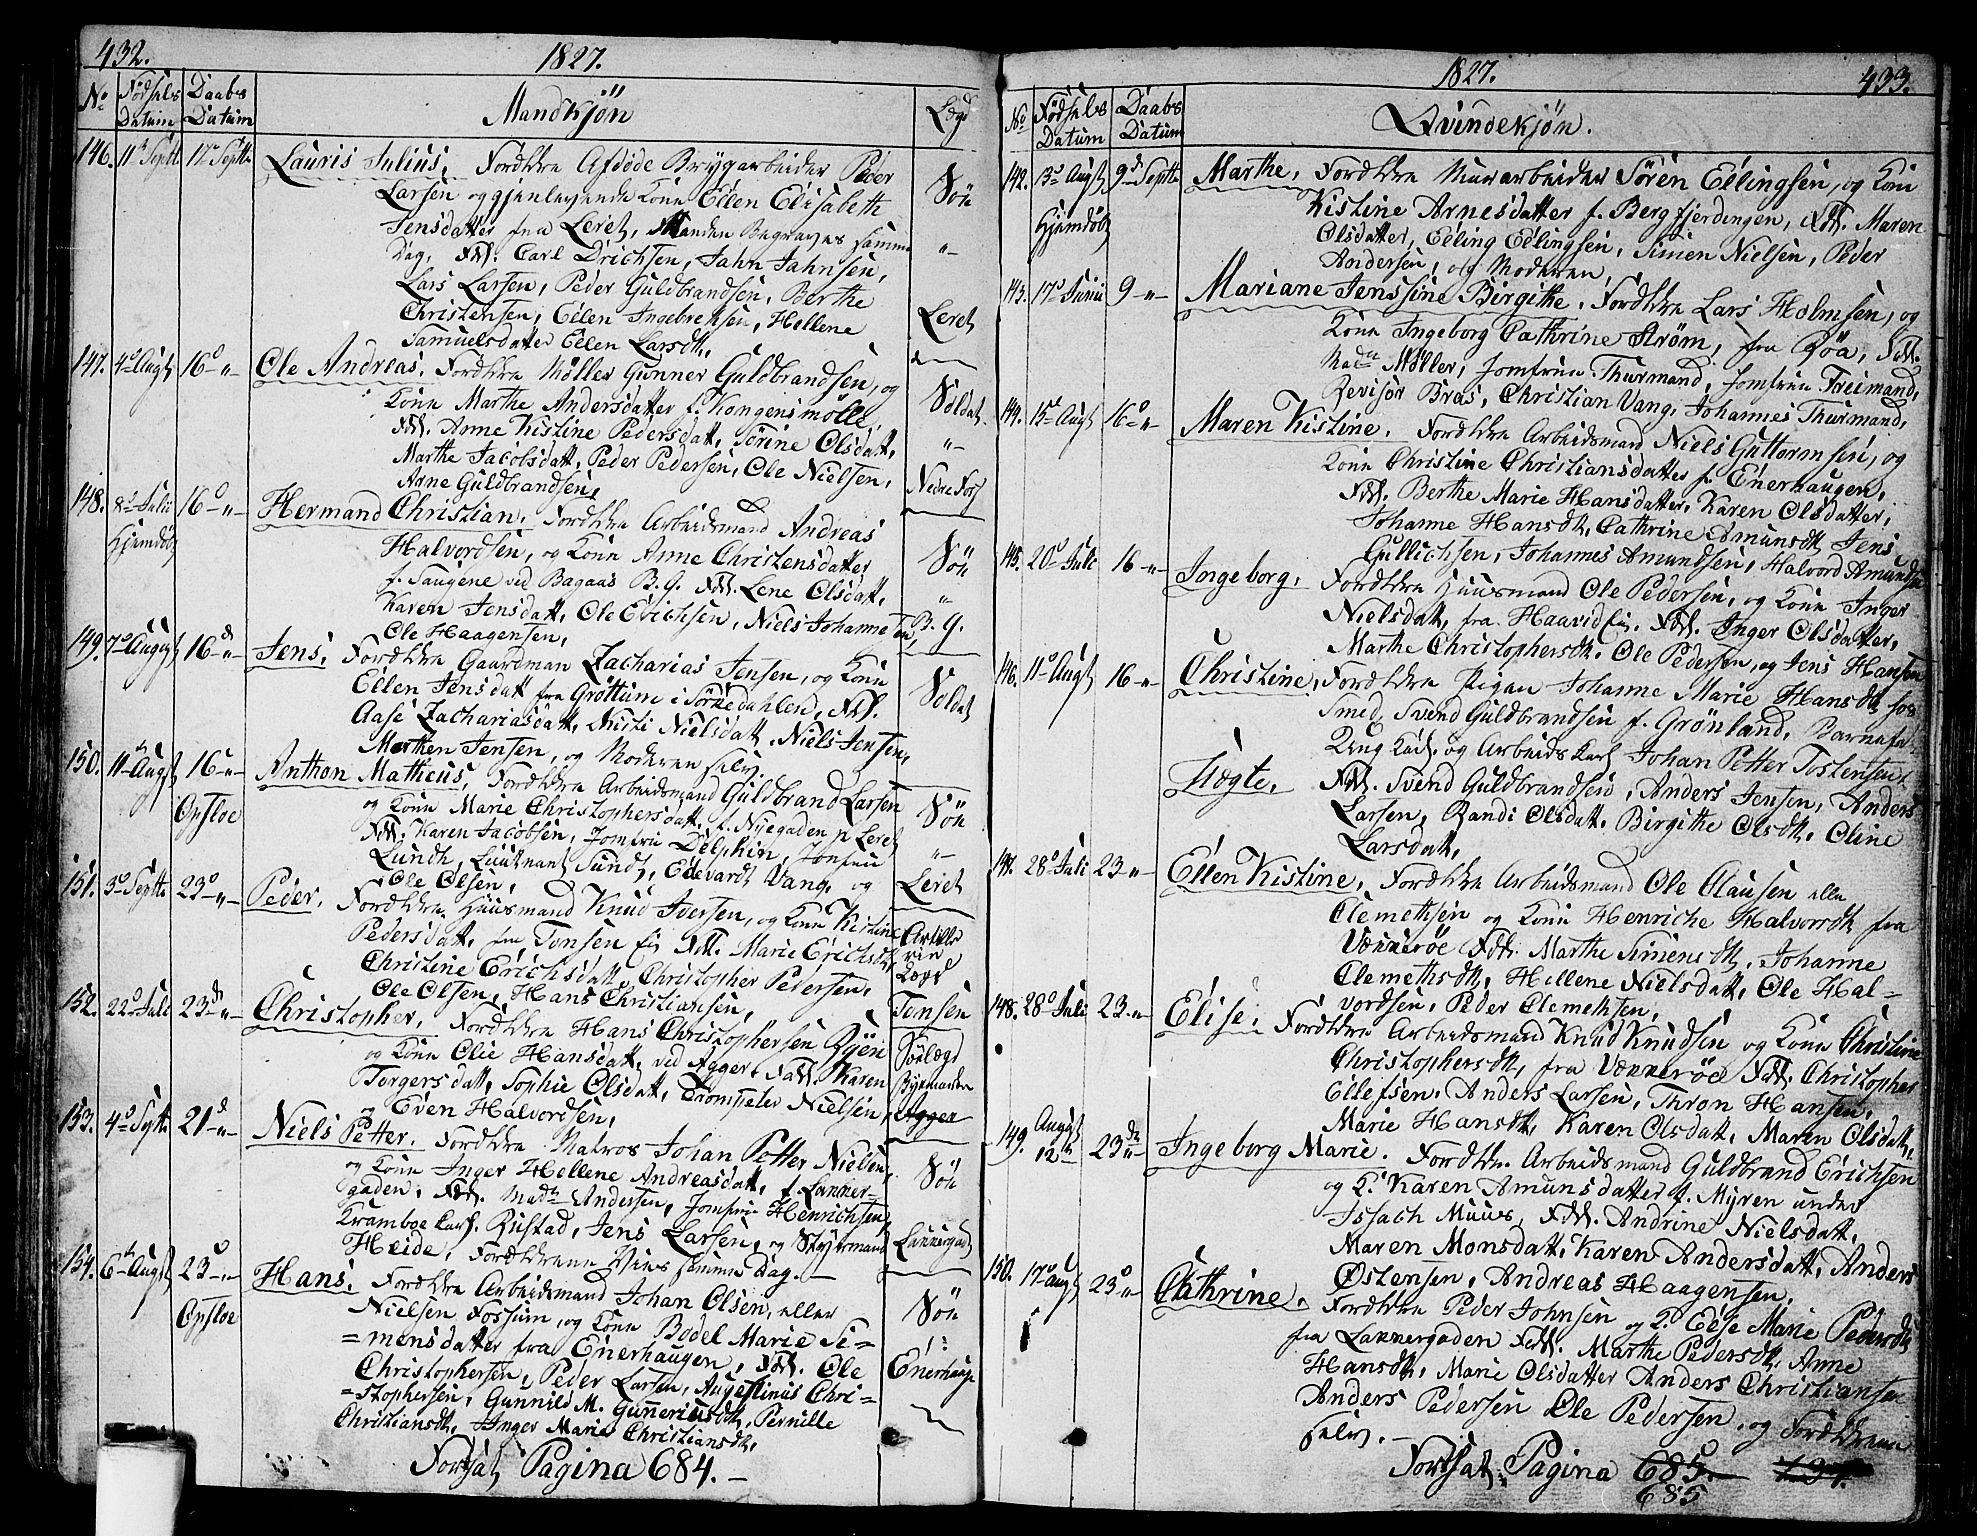 432.
1827.
No Fødsels Datum Daabs Datum Mandkjøn Lægd
146. 11te Septbr 12te Septbr Lauris Julius, Forældre Afdøde Brygarbeider Peder
Larsen og gjenlevende Kone Ellen Elisabeth
Jensdatter fra Leret, Manden Begraves samme
Dag, Fadd. Carl Drichsen, Jahn Jahnsen,
Lars Larsen, Peder Guldbrandsen, Berthe
Christensen, Ellen Ingebrektsen, Hellene
Samuelsdatter Ellen Larsdt,
Søn
"
Leret
147. 4de Augst 16de " Ole Andreas, Forældre Møller Gunner Guldbrandsen, og
Kone Marthe Andersdatter f. Kongensmølle,
Fadd. Anne Kistine Pedersdatt, Sørine Olsdatt,
Marthe Jacobsdatt, Peder Pedersen, Ole Nielsen,
Arne Guldbrandsen,
Soldat
"
Nedre Fos
148. 8de Julii Hjemdøbt 16de " Hermand Christian, Forældre Arbeidsmand Andreas
Halvordsen, og Kone Anne Christensdatter
f. Saugene ved Bagaas B. G. Fadd. Lene Olsdatt,
Karen Jensdatt, Ole Erichsen, Niels Johannesen,
Ole Haagensen,
Søn
"
B. G.
149. 7de August 16de " Jens, Forældre Gaardman Zacharias Jensen, og Kone
Ellen Jensdatt fra Grøttum i Sørkedahlen, Fadd.
Aase Zachariasdatt, Kisti Nielsdatt, Niels Jensen,
Morthen Jensen, og Moderen selv.
Soldat
150. 11te Augst 16 " Opsloe Anthon Matheus, Forældre Arbeidsmand Guldbrand Larsen
og Kone Marie Christophersdatt, f. Nyegaden p Leret
Fadd. Karen Jacobsen, Jomfru Delphin, Jomfru
Lundh, Luutnant Sundt, Edevardt Vang, og
Ole Olsen,
Søn
"
Leret
151. 3de Septbr 23de " Peder, Forældre Huusmand Knud Iversen, og Kone Kistine
Pedersdatt, fra Tonsen Ej Fadd. Marie Erichsdt,
Christine Erichsdatt, Christopher Pedersen,
Ole Olsen, Hans Christiansen,
Artille
rie
Lægd
Tonsen
152. 22de Juli 23de " Christopher, Forældre Hans Christophersen Ryen
og Kone Olie Hansdatt, ved Agger Fadd. Karen
Torgersdatt, Sophie Olsdatt, Trompeter Nielsen,
og Even Halvordsen,
Sølægd
Agger
153. 4de Septbr 21de " Niels Petter, Forældre Matros Johan Petter Nielsen,
og Kone Inger Hellene Andreasdatt, f. Lakker-
gaden, Fadd. Madm Andersen, Jomfrue Henrichsen,
Kramboe Karl. Rustad, Jens Larsen, og Styrmand
Heide, Forældrene Viies samme Dag.
Søn
Lakkergad
154. 6te Augst 23de " Opsloe Hans, Forældre Arbeidsmand Johan Olsen, eller
Nielsen Fossum, og Kone Bodel Marie Si=
=monsdatter fra Enerhaugen, Fadd. Ole
Christophersen, Peder Larsen, Augustinus Chri=
=stophersen, Gunnild M. Gunneriusdt, Pernille
Christiansdt, Inger Marie Christiansdt,
Søn
Enerhauge
Fortsat Pagina 684.
1827.
433.
No Fødsels Datum Daabs Datum Qvindekjøn.
142. 13de Augst Hjemdøbt 9de Septbr Marthe, Forældre Murarbeider Søren Ellingsen, og Kone
Kistine Arnesdatter f. Bergfjerdingen, Fadd. Maren
Olsdatter, Elling Ellingsen, Simen Nielsen, Peder
Andersen, og Moderen,
143. 17de Junii 9 " Mariane Jenssine Birgithe, Forældre Lars Holmsen, og
Kone Ingeborg Cathrine Strøm, fra Røa, Fadd.
Madm Møller, Jomfrue Thurmand, Jomfrue Freimand,
Revisor Bras, Christian Vang, Johannes Thurmand,
144. 15de Augst 16de " Maren Kistine, Forældre Arbeidsmand Niels Guttormsen, og
Kone Christine Christiansdatter f. Enerhaugen,
Fadd. Berthe Marie Hansdatter, Karen Olsdatter,
Johanne Hansdt, Cathrine Amundsdt, Jens
Gullichsen, Johannes Amundsen, Halvord Amundsen
145. 20de Juli 16 " Ingeborg, Forældre Huusmand Ole Pedersen, og Kone Inger
Nielsdatt, fra Haavid Ej. Fadd. Inger Olsdatter,
Marthe Christophersdt, Ole Pedersen, og Jens Hansen
146. 11te Augst 16 " Christine, Forældre Pigen Johanne Marie Hansdt hos
Smed, Svend Guldbrandsen f. Grønland, Barnefa
Ung Karl. og Arbeids Karl Johan Petter Tostensen,
Uægte, Fadd. Svend Guldbrandsen, Anders Jensen, Anders
Larsen, Randi Olsdatt, Birgithe Olsdt, Oline
Larsdatt,
147. 28de Juli 23 " Ellen Kistine, Forældre Arbeidsmand Ole Clausen eller
Clemethsen og Kone Henriche Halvorsdt fra
Vækkerøe Fadd. Marthe Simensdt, Johanne
Clemethsdt, Hellene Nielsdatt, Ole Hal=
vordsen, Peder Clemethsen,
148. 28de Juli 23 " Elise, Forældre Arbeidsmand Knud Knudsen og Kone Christine
Christophersdt, fra Vækkerøe Fadd. Christopher
Ellefsen, Anders Larsen, Thron Hansen,
Marie Hansdt, Karen Olsdatt, Maren Olsdatt,
149. August 12te 23de " Ingeborg Marie, Forældre Arbeidsmand Guldbrand Erichsen
og K. Karen Amundsdatter f. Myren under
Issach Muus, Fadd. Andrine Nielsdatt,
Maren Monsdatt, Karen Andersdatt, Anders
Østensen, Andreas Haagensen,
150. 17de Augst 23de " Cathrine, Forældre Peder Johnsen og K. Else Marie Pedersdt
fra Lakkergaden Fadd. Marthe Pedersdt, Anne
Hansdt, Marie Olsdatter Anders Christiansen
Anders Pedersen Ole Pedersen, og Forældrene
selv.
Fortsat Pagina 685.
685